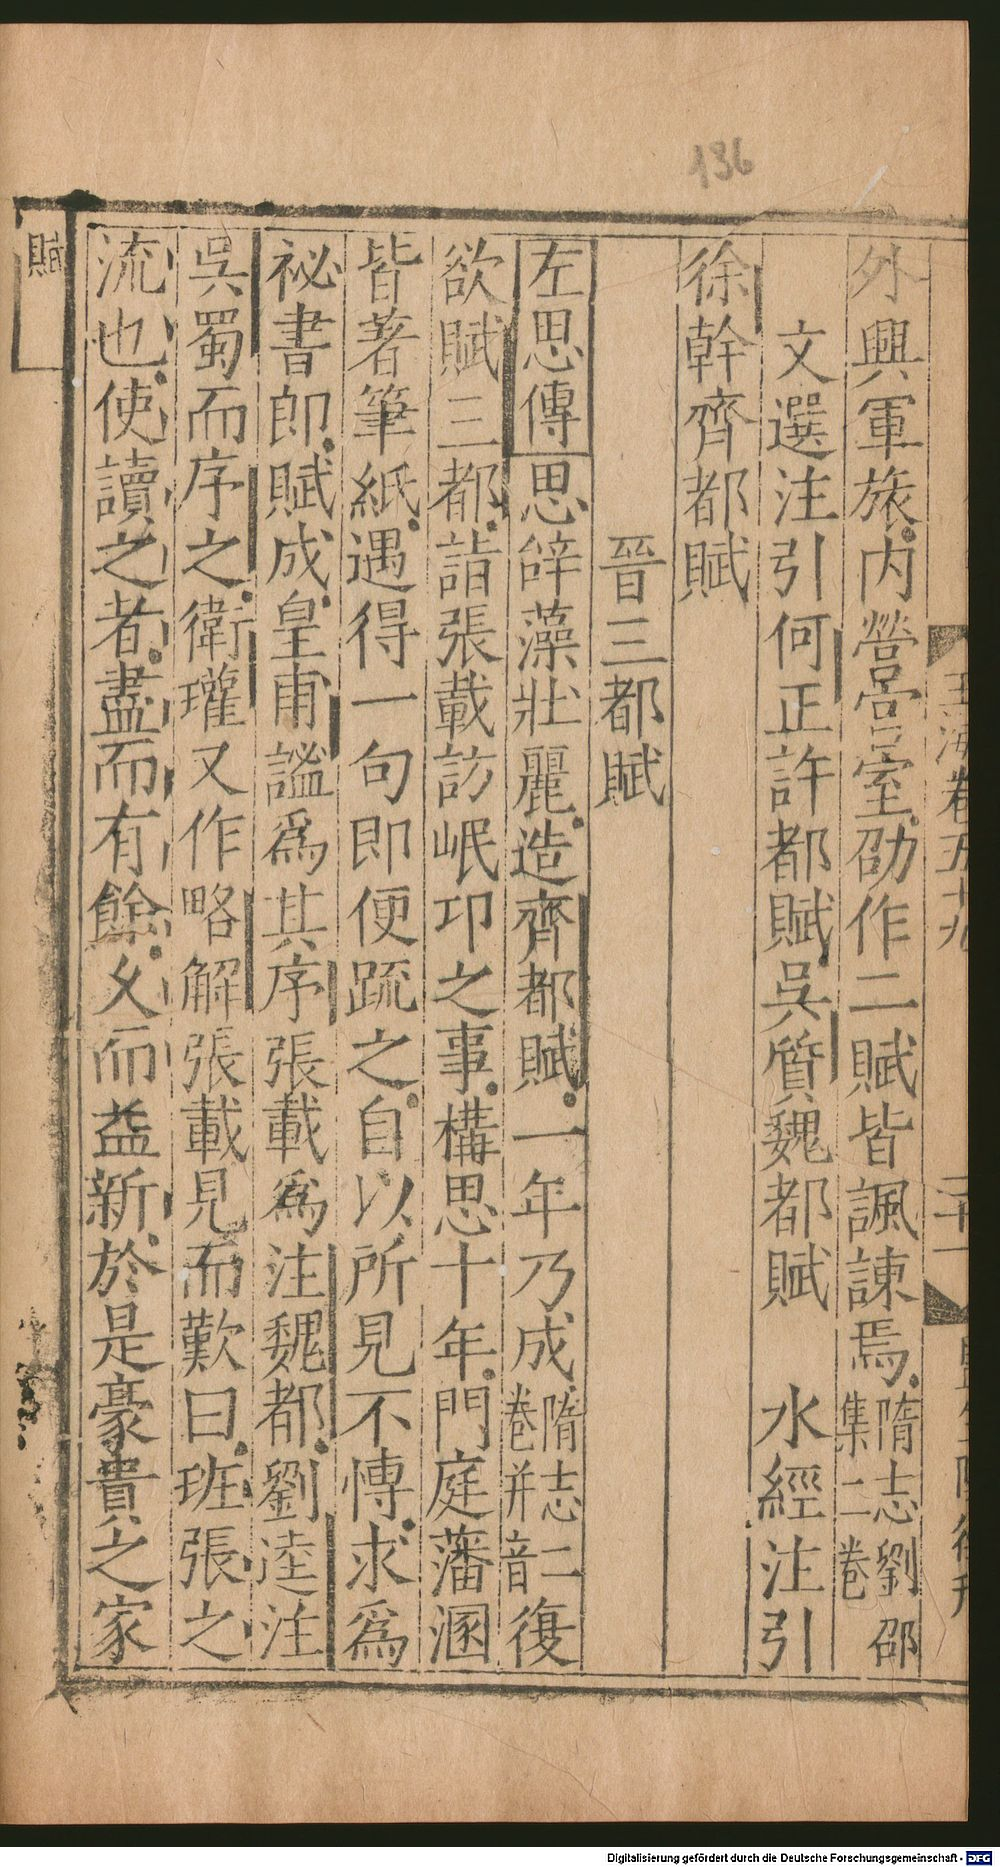 136
玉海卷五十九
二十一
外興軍旅内營宫室劭作二賦皆諷諫焉隋志劉邵集二卷
文選注引何正許都賦吳質魏都賦 水經注引
徐幹齊都賦
晉三都賦
左思傳思辝藻壯麗造齊都賦一年乃成隋志二卷并音復
欲賦三都詣張載訪岷卭之事構思十年門庭藩溷
皆著筆紙遇得一句即便䟽之自以所見不愽求爲
祕書郎賦成皇甫謐爲其序張載爲注魏都劉逵注
吳蜀而序之衛瓘又作略解張載見而歎曰班張之
流也使讀之者盡而有餘久而益新於是豪貴之家
賦
Digitalisierung gefördert durch die Deutsche Forschungsgemeinschaft - DFG